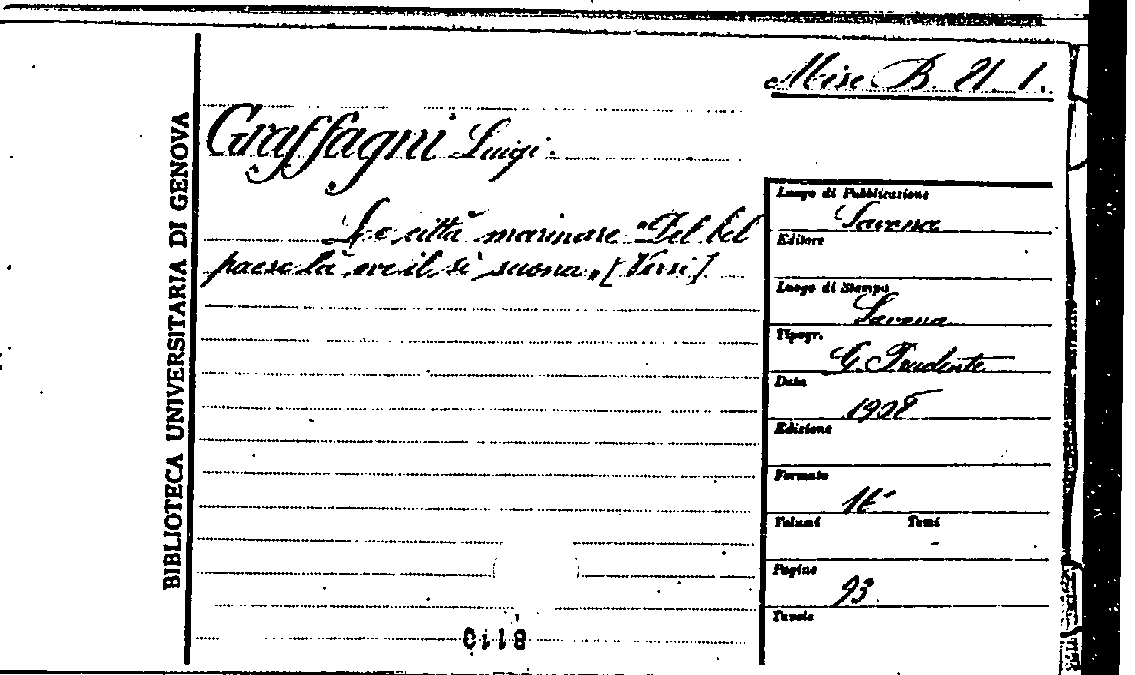 Misc. B. 21. 1.
BIBLIOTECA UNIVERSITARIA DI GENOVA
Graffagni Luigi.
Le città marinare "Del bel
paese là ove il sì suona" [Versi]
Luogo di Pubblicazione
Savona
Editore
Luogo di Stampa
Savona
Tipogr.
G. Prudente
Data
1928
Edizione
Formato
16°
Volumi Tomi
Pagine
93.
Tavole